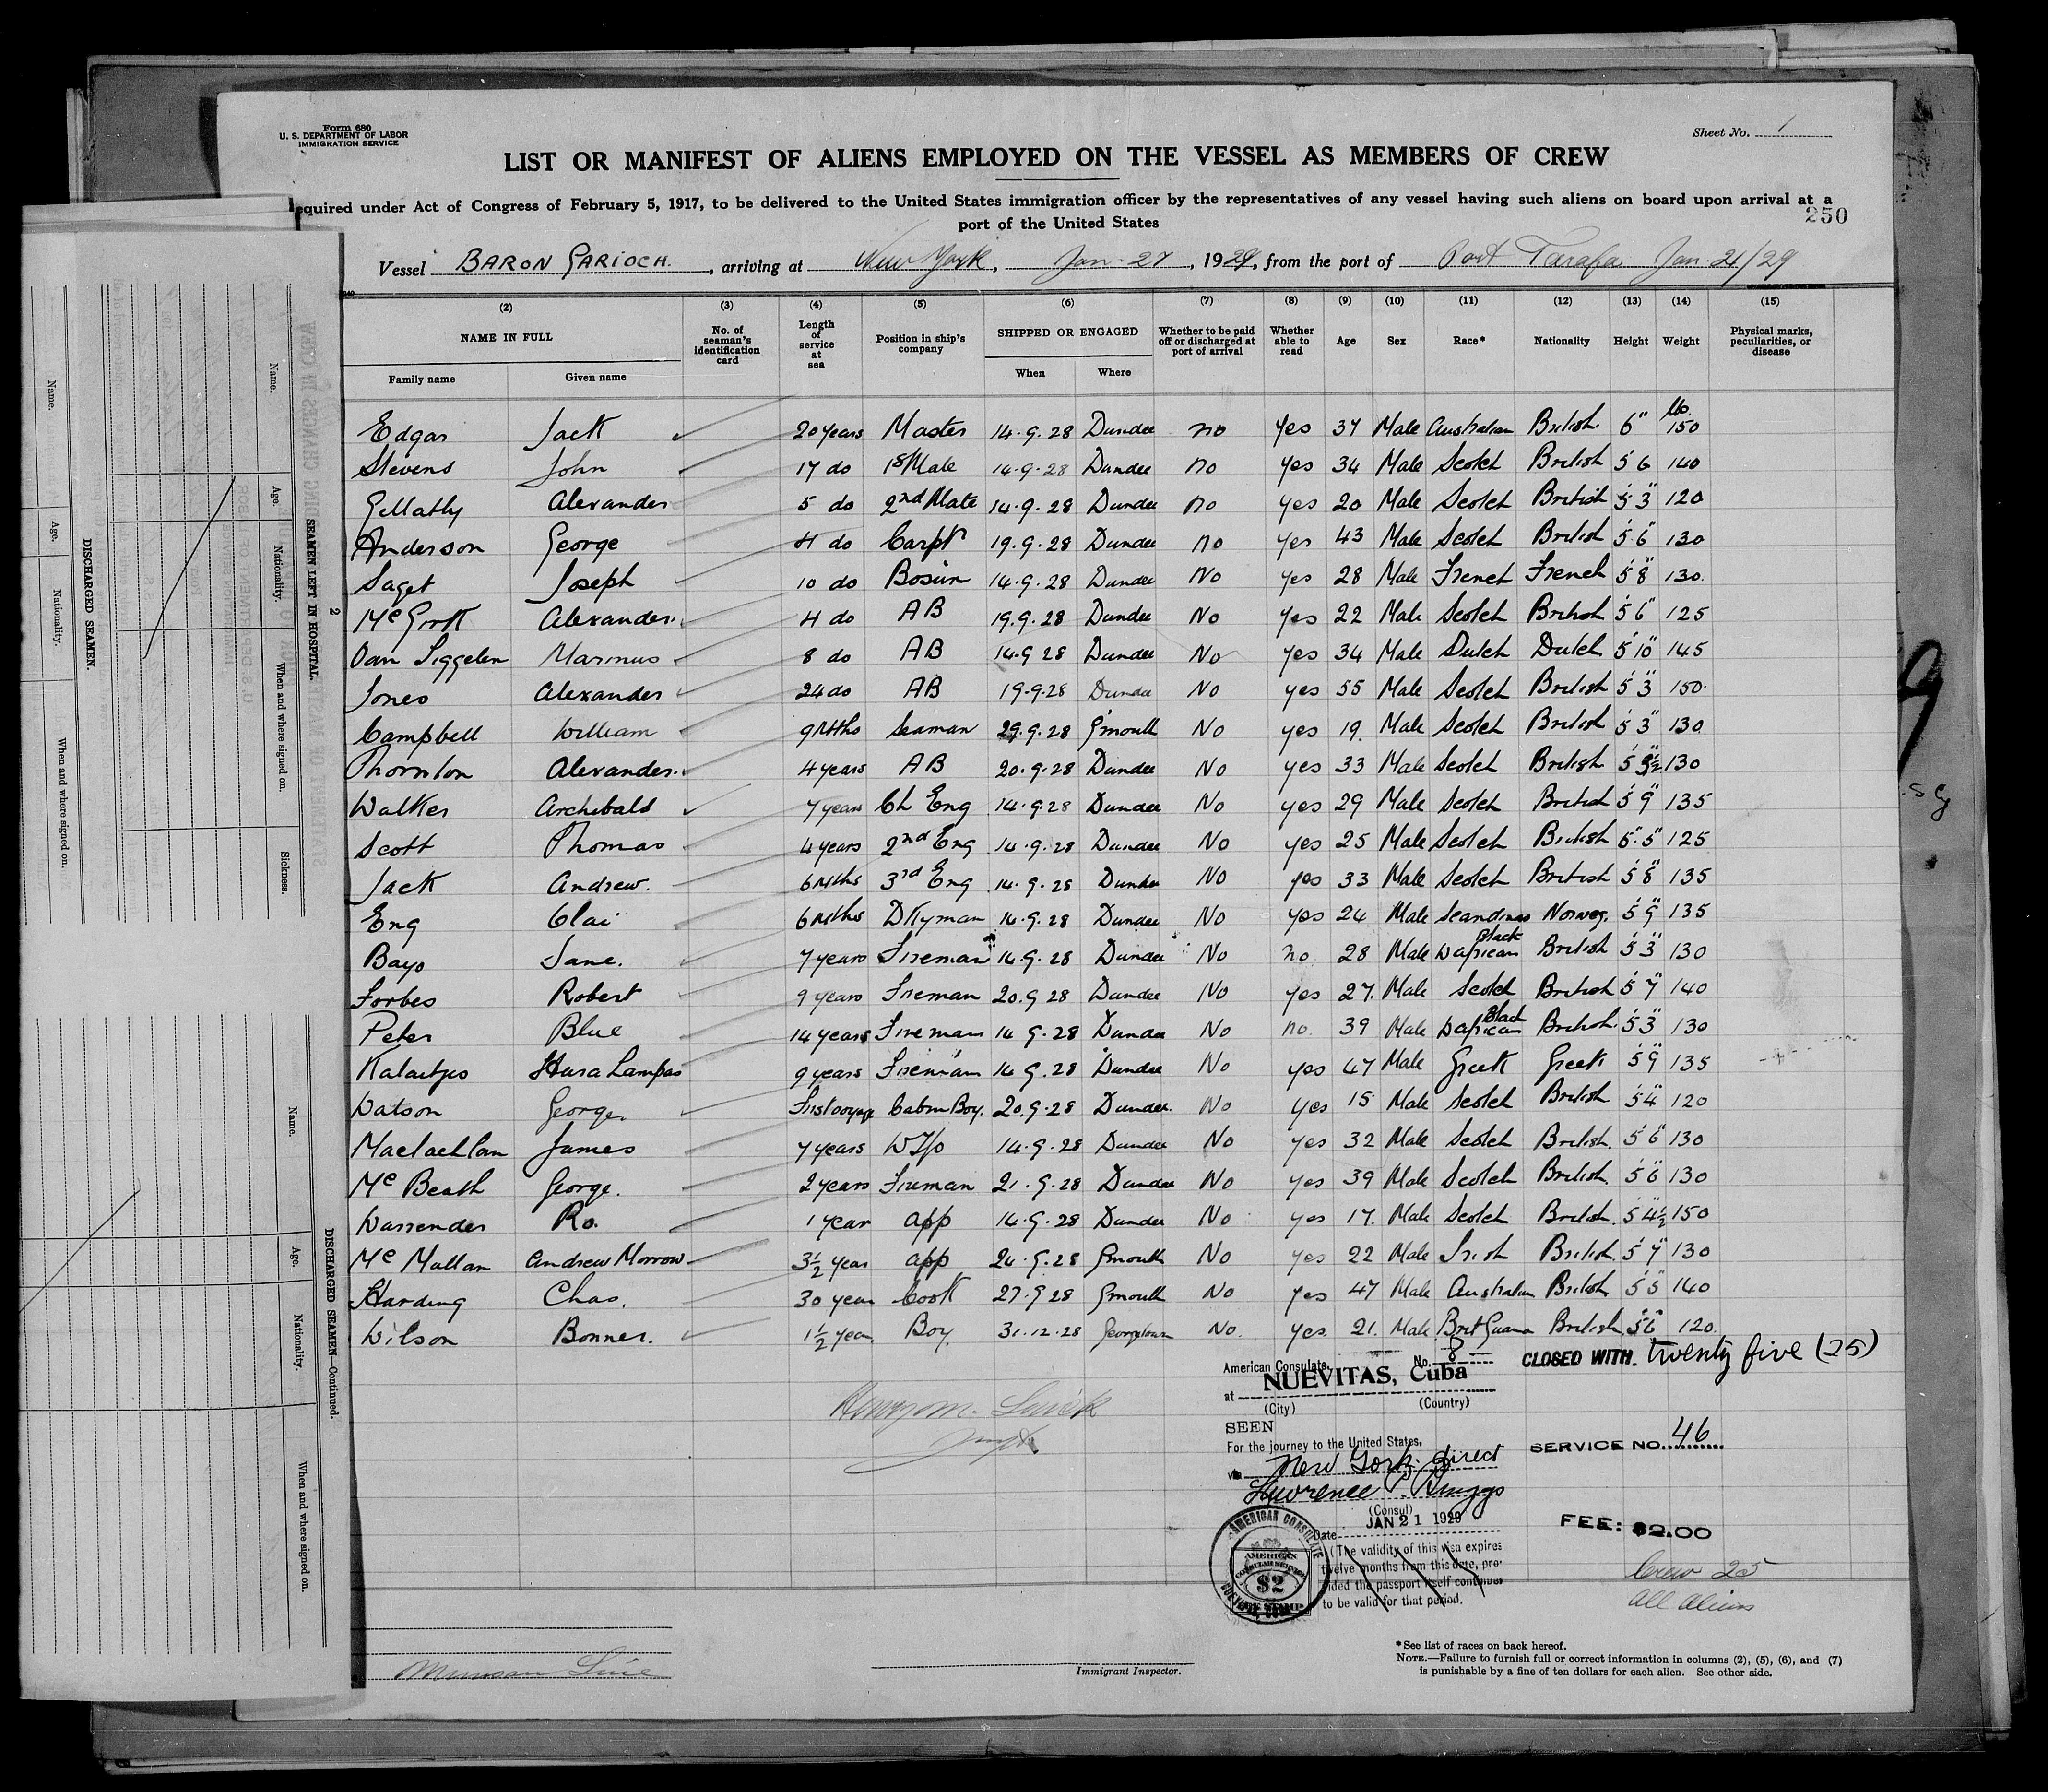 Form 680
U. S. DEPARTMENT OF LABOR
IMMIGRATION SERVICE
Sheet No. 1
LIST OR MANIFEST OF ALIENS EMPLOYED ON THE VESSEL AS MEMBERS OF CREW
equired under Act of Congress of February 5, 1917, to be delivered to the United States immigration officer by the representatives of any vessel having such aliens on board upon arrival at a
port of the United States
250
Vessel BARON GARIOCH., arriving at New York, Jan. 27, 1929, from the port of Port Tarafa Jan. 21/29
(2) (3) (4) (5) (6) (7) (8) (9) (10) (11) (12) (13) (14) (15)
NAME IN FULL No. of seaman's identification card Length of service at sea Position in ship's company SHIPPED OR ENGAGED Whether to be paid off or discharged at port of arrival Whether able to read Age Sex Race* Nationality Height Weight Physical marks, peculiarities, or disease
Family name Given name When Where
Edgar Jack 20 years Master 14.9.28 Dundee no Yes 37 Male Australian British 6" lbs. 150
Stevens John 17 do 1st Mate 14.9.28 Dundee no yes 34 Male Scotch British 5 6 140
Gellatly Alexander 5 do 2nd Mate 14.9.28 Dundee no yes 20 Male Scotch British 5' 3" 120
Anderson George 4 do Carptr 19.9.28 Dundee no yes 43 Male Scotch British 5' 6" 130
Saget Joseph 10 do Bosun 14.9.28 Dundee No yes 28 Male French French 5' 8" 130.
Alexander. 4 do AB 19.9.28 Dundee No yes 22 Male Scotch British 5' 6" 125
Van Siggelen Marinus 8 do AB 14.9 28 Dundee No yes 34 Male Dutch Dutch 5' 10" 145
Jones Alexander 24 do AB 19.9.28 Dundee No yes 55 Male Scotch British 5' 3" 150.
Campbell William 9 Mths Seaman 29.9.28 G'mouth No yes 19. Male Scotch British 5' 3" 130
Thornton Alexander. 4 years AB 20.9.28 Dundee No yes 33 Male Scotch British 130
Walker Archibald 7 years Ch Eng 14.9.28 Dundee No yes 29 Male Scotch British 5' 9" 135
Scott Thomas 4 years 2nd Eng 14.9.28 Dundee No yes 25 Male Scotch British 5'. 5" 125
Jack Andrew. 6 Mths 3rd Eng 14.9.28 Dundee No yes 33 Male Scotch British 5' 8" 135
Eng Olai 6 Mths DKyman 14.9.28 Dundee No yes 24 Male Scandinav Norweg. 5' 9" 135
Bayo Jane. 7 years Fireman 14.9.28 Dundee No no 28 Male Black British 5' 3" 130
Forbes Robert 9 years Fireman 20.9 28 Dundee No yes 27. Male Scotch British 5' 7" 140
Peter Blue 14 years Fireman 14 9.28 Dundee No no. 39 Male Black British 5' 3" 130
Hara Lampas 9 years Fireman 14 9.28 Dundee No yes 47 Male Greek Greek 5' 9" 135
Watson George. First voyage Cabin Boy. 20.9.28 Dundee. No yes 15 Male Scotch British 5' 4" 120
Maclachlan James 7 years 14.9.28 Dundee No yes 32 Male Scotch British. 5' 6" 130
Mc Beath George. 2 years Fireman 21.9.28 Dundee No yes 39 Male Scotch British. 5' 6" 130
Warrender Ro. 1 year app 14.9.28 Dundee No yes 17. Male Scotch British. 5' 4½ 150
Mc Mullan Andrew Morrow 3½ year app 24.9.28 Gmouth No yes 22 Male Irish British. 5' 7" 130
Harding Chas. 30 year Cook 27.9 28 Gmouth No yes 47 Male Australian British 5' 5" 140
Wilson Bonner. 1½ year Boy 31.12.28 Georgetown No. yes. 21. Male Brit Guiana British. 5' 6" 120.
CLOSED WITH twenty five (25)
American Consulate, No. 8
at NUEVITAS, Cuba
(City) (Country)
SEEN
For the journey to the United States,
via New York direct
SERVICE NO. 46
Lawrence P. Briggs
(Consul)
Date JAN 21 1929
FEE: $2.00
(The validity of this visa expires
twelve months from this date, pro-
vided the passport itself continues
to be valid for that period.
AMERICAN CONSULATE
AMERICAN
CONSULAR SERVICE
$2
FEE STAMP
Crew 25
All aliens
Munson Line
Immigrant Inspector.
*See list of races on back hereof.
NOTE.—Failure to furnish full or correct information in columns (2), (5), (6), and (7)
is punishable by a fine of ten dollars for each alien. See other side.
2
SEAMEN LEFT IN HOSPITAL.
Name. Age. Nationality. When and where signed on. Sickness.
DISCHARGED SEAMEN.
Name. Age. Nationality. When and where signed on.
DISCHARGED SEAMEN—Continued.
Name. Age. Nationality. When and where signed on.